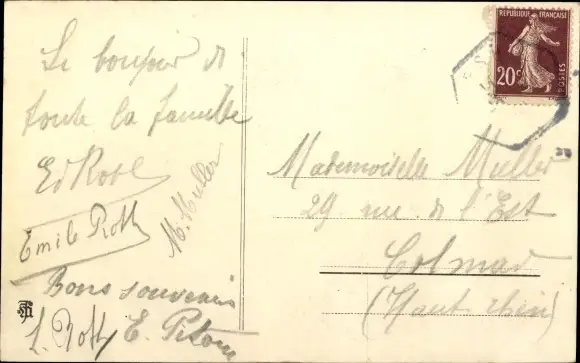 Le bonjour de
toute la famille
Ed Roth
M. Muller
Emile Roth
Bons souvenirs
L. Roth E.
REPUBLIQUE FRANÇAISE
20c
POSTES
Mademoiselle Muller
29 rue de l'Est
Colmar
(Haut Rhin)